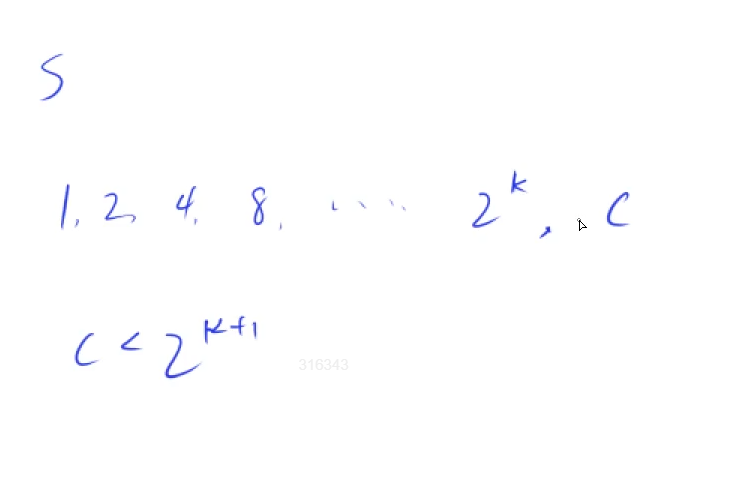 S
1, 2, 4, 8, ..... 2^k, C
C < 2^{k+1}
316343